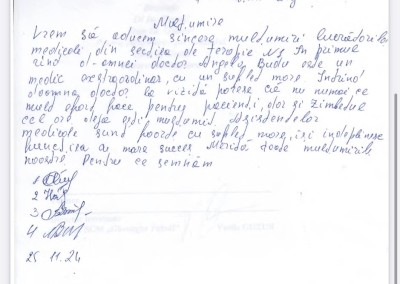 Mulțumire
Vrem să aducem sincere mulțumiri lucrătorilor
medicali din secția de terapie N5 În primul
rînd d-amnei doctor Angela Budu este un
medic extraordinar, cu un suflet mare Intrînd
doamna doctor la vizită putem că nu numai ce
mult apart face pentru pacienți, dar și zîmbetul
cel are deja ești mulțumit Asistentelor
medicale sunt foarte cu suflet mare, își îndeplinesc
funcția cu mare succes Merită toate mulțumirile
noastre Pentru ce semnăm
1
2
3
4
25 11.24